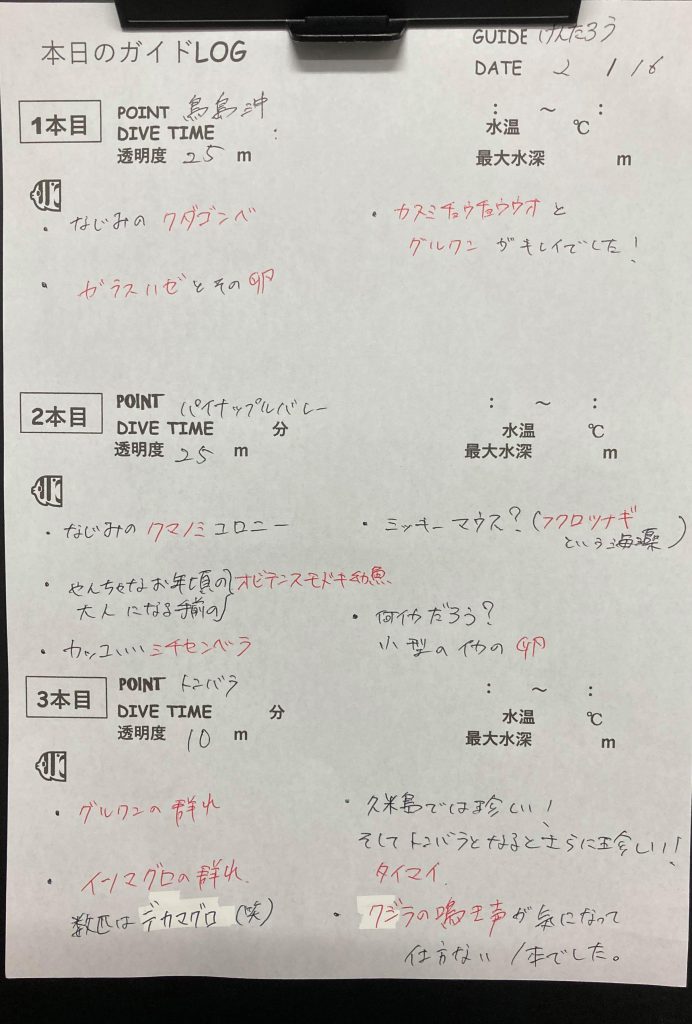 本日のガイドLOG
GUIDE けんたろう
DATE 2 / 16
1本目
POINT 鳥島沖
DIVE TIME :
透明度 25 m
: ～ :
水温 ℃
最大水深 m
・なじみの クダゴンベ
・ガラスハゼとその卵
・カスミチョウチョウウオと
グルクン がキレイでした!
2本目
POINT パイナップルバレー
DIVE TIME 分
透明度 25 m
: ～ :
水温 ℃
最大水深 m
・なじみの クマノミ コロニー
・やんちゃなお年頃の オビテンスモドキ幼魚
大人になる手前の
・カッコいい ミチセンベラ
・ミッキーマウス?(フクロツナギ
という海藻)
・何イカだろう?
小型のイカの 卵
3本目
POINT トンバラ
DIVE TIME 分
透明度 10 m
: ～ :
水温 ℃
最大水深 m
・グルクンの群れ
・イソマグロの群れ
数匹はデカマグロ(笑)
・久米島では珍しい!
そしてトンバラとなるとさらに珍しい!
タイマイ
・クジラの鳴き声が気になって
仕方ない 1本でした。